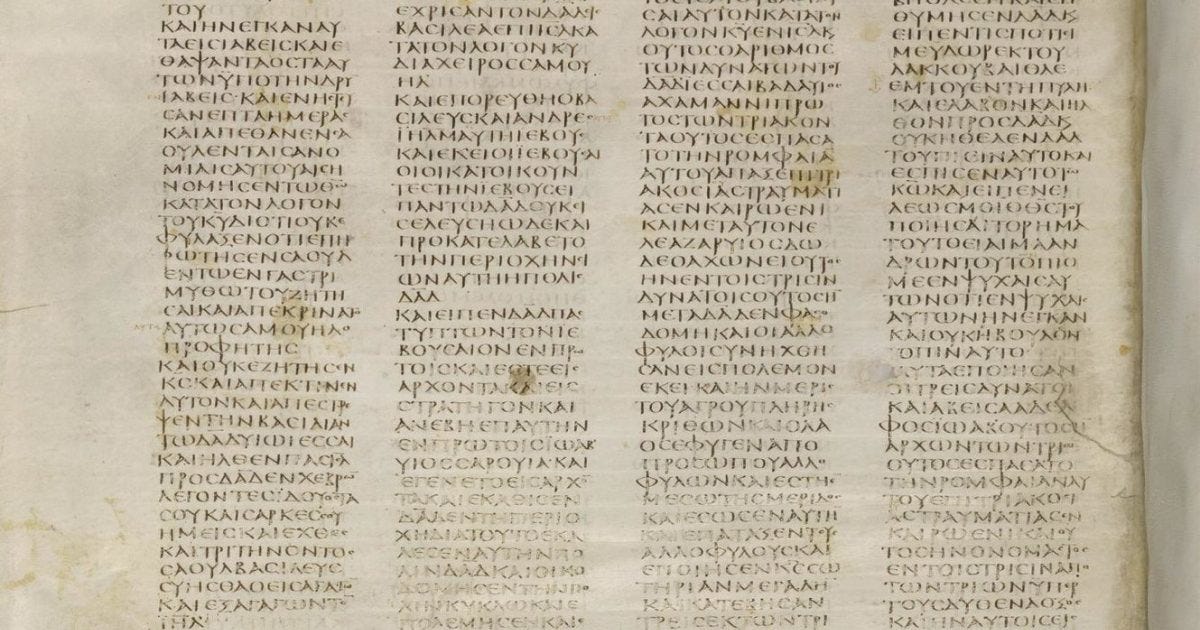 ΤΟΥ
ΚΑΙΗΝΕΓΚΑΝΑΥ
ΤΑΕΙϹΙΑΒΕΙϹΚΑΙΕ
ΘΑΨΑΝΤΑΟϹΤΑΑΥ
ΤΩΝΥΠΟΤΗΝΔΡΥ
ΙΑΒΕΙϹ·ΚΑΙΕΝΗϹΤΙ
ϹΑΝΕΠΤΑΗΜΕΡΑϹ
ΚΑΙΑΠΕΘΑΝΕΝϹΑ
ΟΥΛΕΝΤΑΙϹΑΝΟ
ΜΙΑΙϹΑΥΤΟΥΑΙϹΗ
ΝΟΜΗϹΕΝΤΩΘΩ
ΚΑΤΑΤΟΝΛΟΓΟΝ
ΤΟΥΚΥΔΙΟΤΙΟΥΚΕ
ΦΥΛΑΞΕΝΟΤΙΕΠΗ
ΡΩΤΗϹΕΝϹΑΟΥΛ
ΕΝΤΩΕΝΓΑϹΤΡΙ
ΜΥΘΩΤΟΥΖΗΤΗ
ϹΑΙΚΑΙΑΠΕΚΡΙΝΑΤ
ΑΥΤΩϹΑΜΟΥΗΛΟ
ΠΡΟΦΗΤΗϹ
ΚΑΙΟΥΚΕΖΗΤΗϹΕΝ
ΚϹΚΑΙΑΠΕΚΤΙΝΕΝ
ΑΥΤΟΝΚΑΙΑΠΕϹΤΡΕ
ΨΕΝΤΗΝΒΑϹΙΛΙΑΝ
ΤΩΔΑΔΥΙΩΙΕϹϹΑΙ
ΚΑΙΗΛΘΕΝΠΑϹΙΗΛ
ΠΡΟϹΔΑΔΕΝΧΕΒΡΩ
ΛΕΓΟΝΤΕϹΙΔΟΥΟϹΤΑ
ϹΟΥΚΑΙϹΑΡΚΕϹϹΟΥ
ΗΜΕΙϹΚΑΙΕΧΘΕϹ
ΚΑΙΤΡΙΤΗΝΟΝΤΟϹ
ϹΑΟΥΛΒΑϹΙΛΕΥϹ
ϹΥΗϹΘΑΟΕΙϹΑΓΑΓΩ
ΚΑΙΕΞΑΓΑΓΩΝΤΟ
ΙΗΛ
ΕΧΡΙϹΑΝΤΟΝΔΑΔΕΙϹ
ΒΑϹΙΛΕΑΕΠΙΙϹΑΚΑ
ΤΑΤΟΝΛΟΓΟΝΚΥ
ΔΙΑΧΕΙΡΟϹϹΑΜΟΥ
ΗΛ
ΚΑΙΕΠΟΡΕΥΘΗΟΒΑ
ϹΙΛΕΥϹΚΑΙΑΝΔΡΕϹ
ΙΗΛΜΑΥΤΗΙΕΒΟΥϹ
ΚΑΙΕΚΕΙΟΙΙΕΒΟΥϹΑΙ
ΟΙΟΙΚΑΤΟΙΚΟΥΝ
ΤΕϹΤΗΝΙΕΒΟΥϹΕΙ
ΠΑΝΤΩΔΑΔΟΥΚΕΙ
ϹΕΛΕΥϹΗΩΔΕΚΑΙ
ΠΡΟΚΑΤΕΛΑΒΕΤΟ
ΤΗΝΠΕΡΙΟΧΗΝϹΙ
ΩΝΑΥΤΗΗΠΟΛΙϹ
ΔΑΔ
ΚΑΙΕΙΠΕΝΔΑΔΠΑϹ
ΤΥΠΤΩΝΤΟΝΙΕ
ΒΟΥϹΑΙΟΝΕΝΠΡΩ
ΤΟΙϹΚΑΙΕϹΤΕΕΙϹ
ΑΡΧΟΝΤΑΚΑΙΕΙϹ
ϹΤΡΑΤΗΓΟΝΚΑΙ
ΑΝΕΒΗΕΠΑΥΤΗΝ
ΕΝΠΡΩΤΟΙϹΙΩΑΒ
ΥΙΟϹϹΑΡΟΥΙΑ·ΚΑΙ
ΕΓΕΝΕΤΟΕΙϹΑΡΧΟ
ΤΑΚΑΙΕΚΑΘΙϹΕΝ
ΔΑΔΕΝΤΗΠΕΡΙΟ
ΧΗΔΙΑΤΟΥΤΟΕΚΑ
ΛΕϹΕΝΑΥΤΗΝΠΟ
ΛΙΝΔΑΔΚΑΙΟΙΚΟ
ΔΟΜΗϹΕΝΤΗΝΠΟ
ΧΗΝΚΥΚΛΩΚΑΙΕ
ΠΟΛΕΜΗϹΕΝΚΑΙ
ϹΑΙΑΥΤΟΝΚΑΤΑΤΟΝ
ΛΟΓΟΝΚΥΕΝΙϹΑΚ
ΟΥΤΟϹΟΑΡΙΘΜΟϹ
ΤΩΝΔΥΝΑΤΩΝΤΟΥ
ΔΑΔΙΕϹϹΑΙΒΑΔΑΥΙΟϹ
ΑΧΑΜΑΝΝΙΠΡΩ
ΤΟϹΤΩΝΤΡΙΑΚΟΝ
ΤΑΟΥΤΟϹΕϹΠΑϹΑ
ΤΟΤΗΝΡΟΜΦΑΙΑ
ΑΥΤΟΥΑΠΑΞΕΠΙΤΡΙ
ΑΚΟϹΙΑϹΤΡΑΥΜΑΤΙ
ΑϹΕΝΚΑΙΡΩΕΝΙ
ΚΑΙΜΕΤΑΥΤΟΝΕ
ΛΕΑΖΑΡΥΙΟϹΔΩ
ΔΕΟΑΧΩΝΕΙΟΥΤΟϹ
ΗΝΕΝΤΟΙϹΤΡΙϹΙΝ
ΔΥΝΑΤΟΙϹΟΥΤΟϹΗ
ΜΕΤΑΔΑΔΕΝΦΑϹΟ
ΔΟΜΗΚΑΙΟΙΑΛΛΟ
ΦΥΛΟΙϹΥΝΗΧΘΗ
ϹΑΝΕΙϹΠΟΛΕΜΟΝ
ΕΚΕΙΚΑΙΗΝΜΕΡΙϹ
ΤΟΥΑΓΡΟΥΠΛΗΡΗϹ
ΚΡΙΘΩΝΚΑΙΟΛΑ
ΟϹΕΦΥΓΕΝΑΠΟ
ΠΡΟϹΩΠΟΥΑΛΛΟ
ΦΥΛΩΝΚΑΙΕϹΤΗ
ΜΕϹΩΤΗϹΜΕΡΙΔΟϹ
ΚΑΙΕϹΩϹΕΝΑΥΤΗ
ΚΑΙΕΠΑΤΑΞΕΝΤΟΥϹ
ΑΛΛΟΦΥΛΟΥϹΚΑΙ
ΕΠΟΙΗϹΕΝΚϹϹΩ
ΤΗΡΙΑΝΜΕΓΑΛΗ
ΚΑΙΚΑΤΕΒΗϹΑΝ
ΤΡΕΙϹΕΚΤΩΝΤΡΙ
ΘΥΜΗϹΕΝΔΑΔΚϹ
ΕΙΠΕΝΤΙϹΠΟΤΙΕΙ
ΜΕΥΔΩΡΕΚΤΟΥ
ΛΑΚΚΟΥΒΑΙΘΛΕ
ΕΜΤΟΥΕΝΤΗΠΥΛΗ
ΚΑΙΕΛΑΒΟΝΚΑΙΗΛ
ΘΟΝΠΡΟϹΔΑΔΚϹ
ΟΥΚΗΘΕΛΕΝΔΑΔ
ΤΟΥΠΙΕΙΝΑΥΤΟΚΑΙ
ΕϹΠΙϹΕΝΑΥΤΟΤΩ
ΚΩΚΑΙΕΙΠΕΝΕΙ
ΛΕΩϹΜΟΙΟΘϹΤΟΥ
ΠΟΙΗϹΑΙΤΟΡΗΜΑ
ΤΟΥΤΟΕΙΑΙΜΑΑΝ
ΔΡΩΝΤΟΥΤΟΠΙΟ
ΜΕΕΝΨΥΧΑΙϹΑΥ
ΤΩΝΟΤΙΕΝΨΥΧΑΙϹ
ΑΥΤΩΝΗΝΕΓΚΑΝ
ΚΑΙΟΥΚΗΒΟΥΛΟΝ
ΤΟΠΙΝΑΥΤΟ
ΤΑΥΤΑΕΠΟΙΗϹΑΝ
ΟΙΤΡΕΙϹΔΥΝΑΤΟΙ
ΚΑΙΑΒΕΙϹΑΑΔΕΛ
ΦΟϹΙΩΑΒΟΥΤΟϹΗ
ΑΡΧΩΝΤΩΝΤΡΙΩ
ΟΥΤΟϹΕϹΠΑϹΑΤΟ
ΤΗΝΡΟΜΦΑΙΑΝΑΥ
ΤΟΥΕΠΙΤΡΙΑΚΟϹΙ
ΑϹΤΡΑΥΜΑΤΙΑϹΕΝ
ΚΑΙΡΩΕΝΙΚΑΙΟΥ
ΤΟϹΗΝΟΝΟΜΑϹΤΟϹ
ΕΝΤΟΙϹΤΡΙϹΙΝΑΠΟ
ΤΩΝΤΡΙΩΝΥΠΕΡ
ΤΟΥϹΔΥΟΕΝΔΟΞΟϹ
ΚΑΙΗΝΑΥΤΟΙϹΕΙϹ